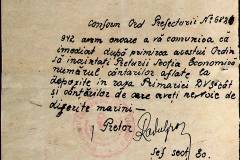 Conform Ord Prefecturii No 6828
942 avem onoare a vă comunica că
imediat după primirea acestui Ordin
să înaintați Preturii Secția Economică
numărul cântarilor aflate la
depozite în raza Primăriei Dvs cât
și cântarilor de care aveți nevoie de
diferite marimi
Pretor
Șef sect Ec.